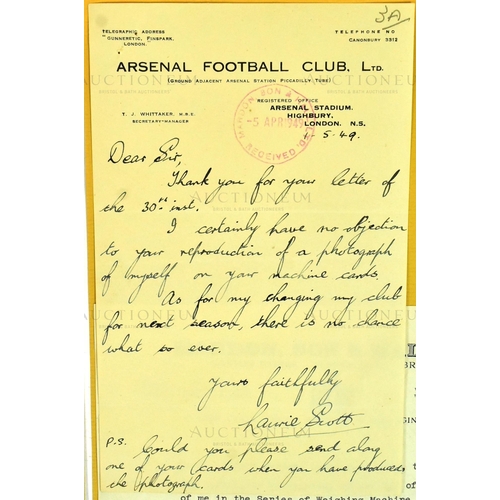 3A
TELEGRAPHIC ADDRESS
"GUNNERETIC, FINSPARK,
LONDON."
TELEPHONE NO
CANONBURY 3312
ARSENAL FOOTBALL CLUB, LTD.
(GROUND ADJACENT ARSENAL STATION PICCADILLY TUBE)
REGISTERED OFFICE
ARSENAL STADIUM,
HIGHBURY,
LONDON. N.5.
T. J. WHITTAKER, M.B.E.
SECRETARY-MANAGER
-5 APR 1949
RECEIVED
5.49.
Dear Sir,
Thank you for your letter of
the 30th inst.
I certainly have no objection
to your reproduction of a photograph
of myself on your machine cards.
As for my changing my club
for next season, there is no chance
what so ever.
Yours faithfully
Laurie Scott
P.S. Could you please send along
one of your cards when you have produced
the photograph.
of me in the Series of Weighing Machine
AUCTIONEUM
BRISTOL & BATH AUCTIONEERS